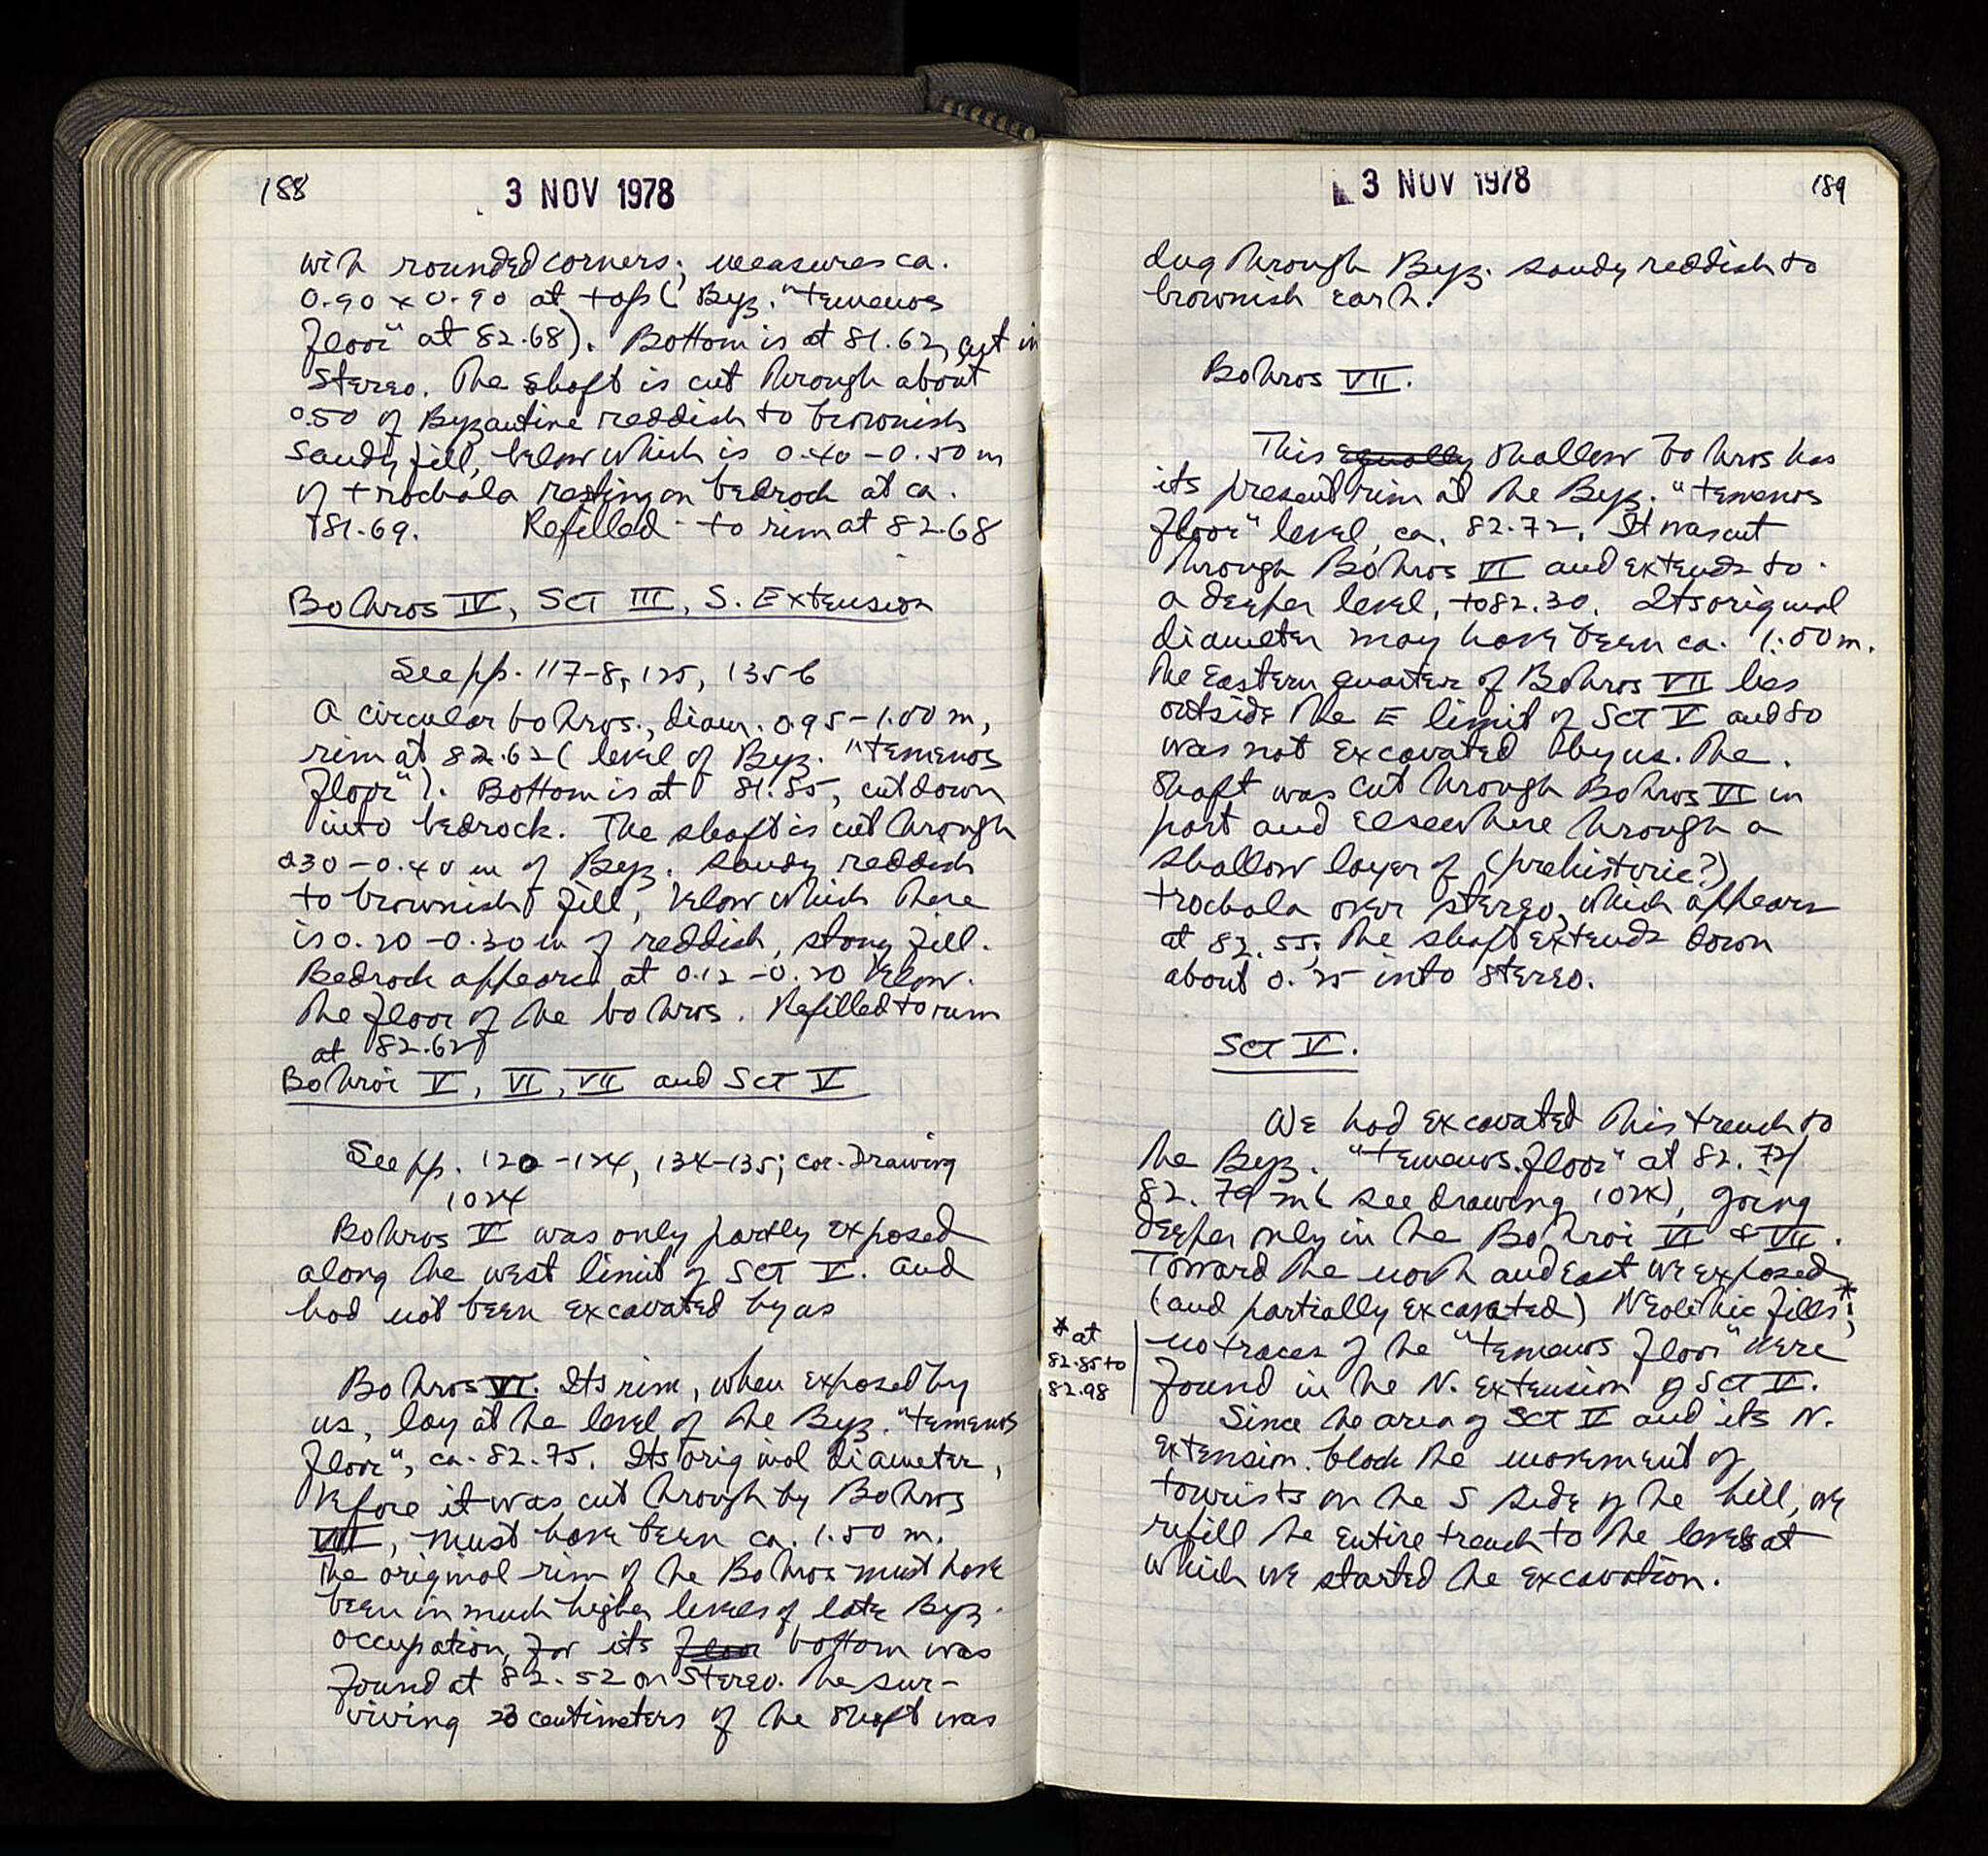 188
3 NOV 1978
with rounded corners; measures ca.
0.90 x 0.90 at top (Byz. "temenos
floor" at 82.68). Bottom is at 81.62, cut in
stereo. The shaft is cut through about
0.50 of Byzantine reddish to brownish
sandy fill, below which is 0.40-0.50 m
of trochala resting on bedrock at ca.
+81.69. Refilled - to rim at 82.68
Bothros IV, SCT III, S. Extension
See pp. 117-8, 125, 135-6
A circular bothros, diam. 0.95-1.00 m,
rim at 82.62 (level of Byz. "temenos
floor"). Bottom is at 81.85, cut down
into bedrock. The shaft is cut through
0.30-0.40 m of Byz. sandy reddish
to brownish fill, below which there
is 0.20-0.30 m of reddish, stony fill.
Bedrock appeared at 0.12-0.20 below
the floor of the bothros. Refilled to rim
at 82.62
Bothroi V, VI, VII and SCT V
See pp. 120-124, 134-135; cor. Drawing
1024
Bothros V was only partly exposed
along the west limit of SCT V. and
had not been excavated by us
Bothros VI. Its rim, when exposed by
us, lay at the level of the Byz. "temenos
floor", ca. 82.75. Its original diameter,
before it was cut through by Bothros
VII, must have been ca. 1.50 m.
The original rim of the Bothros must have
been in much higher levels of late Byz.
occupation, for its floor bottom was
found at 82.52 on stereo. The sur-
viving 23 centimeters of the shaft was
3 NOV 1978
189
dug through Byz. sandy reddish to
brownish earth.
Bothros VII.
This equally shallow bothros has
its present rim at the Byz. "temenos
floor" level, ca. 82.72. It was cut
through Bothros VI and extends to
a deeper level, to 82.30. Its original
diameter may have been ca. 1.00 m.
The Eastern quarter of Bothros VII lies
outside the E limit of SCT V and so
was not excavated by us. The
shaft was cut through Bothros VI in
part and elsewhere through a
shallow layer of (prehistoric?)
trochala over stereo, which appears
at 82.55; the shaft extends down
about 0.25 into stereo.
SCT V.
We had excavated this trench to
the Byz. "temenos floor" at 82.72/
82.79 m (see drawing 1024), going
deeper only in the Bothroi VI & VII.
Toward the north and east we exposed
(and partially excavated) Neolithic fills*;
no traces of the "temenos floor" were
found in the N. extension of SCT V.
* at
82.85 to
82.98
Since the area of SCT V and its N.
extension block the movement of
tourists on the S side of the hill, we
refill the entire trench to the levels at
which we started the excavation.